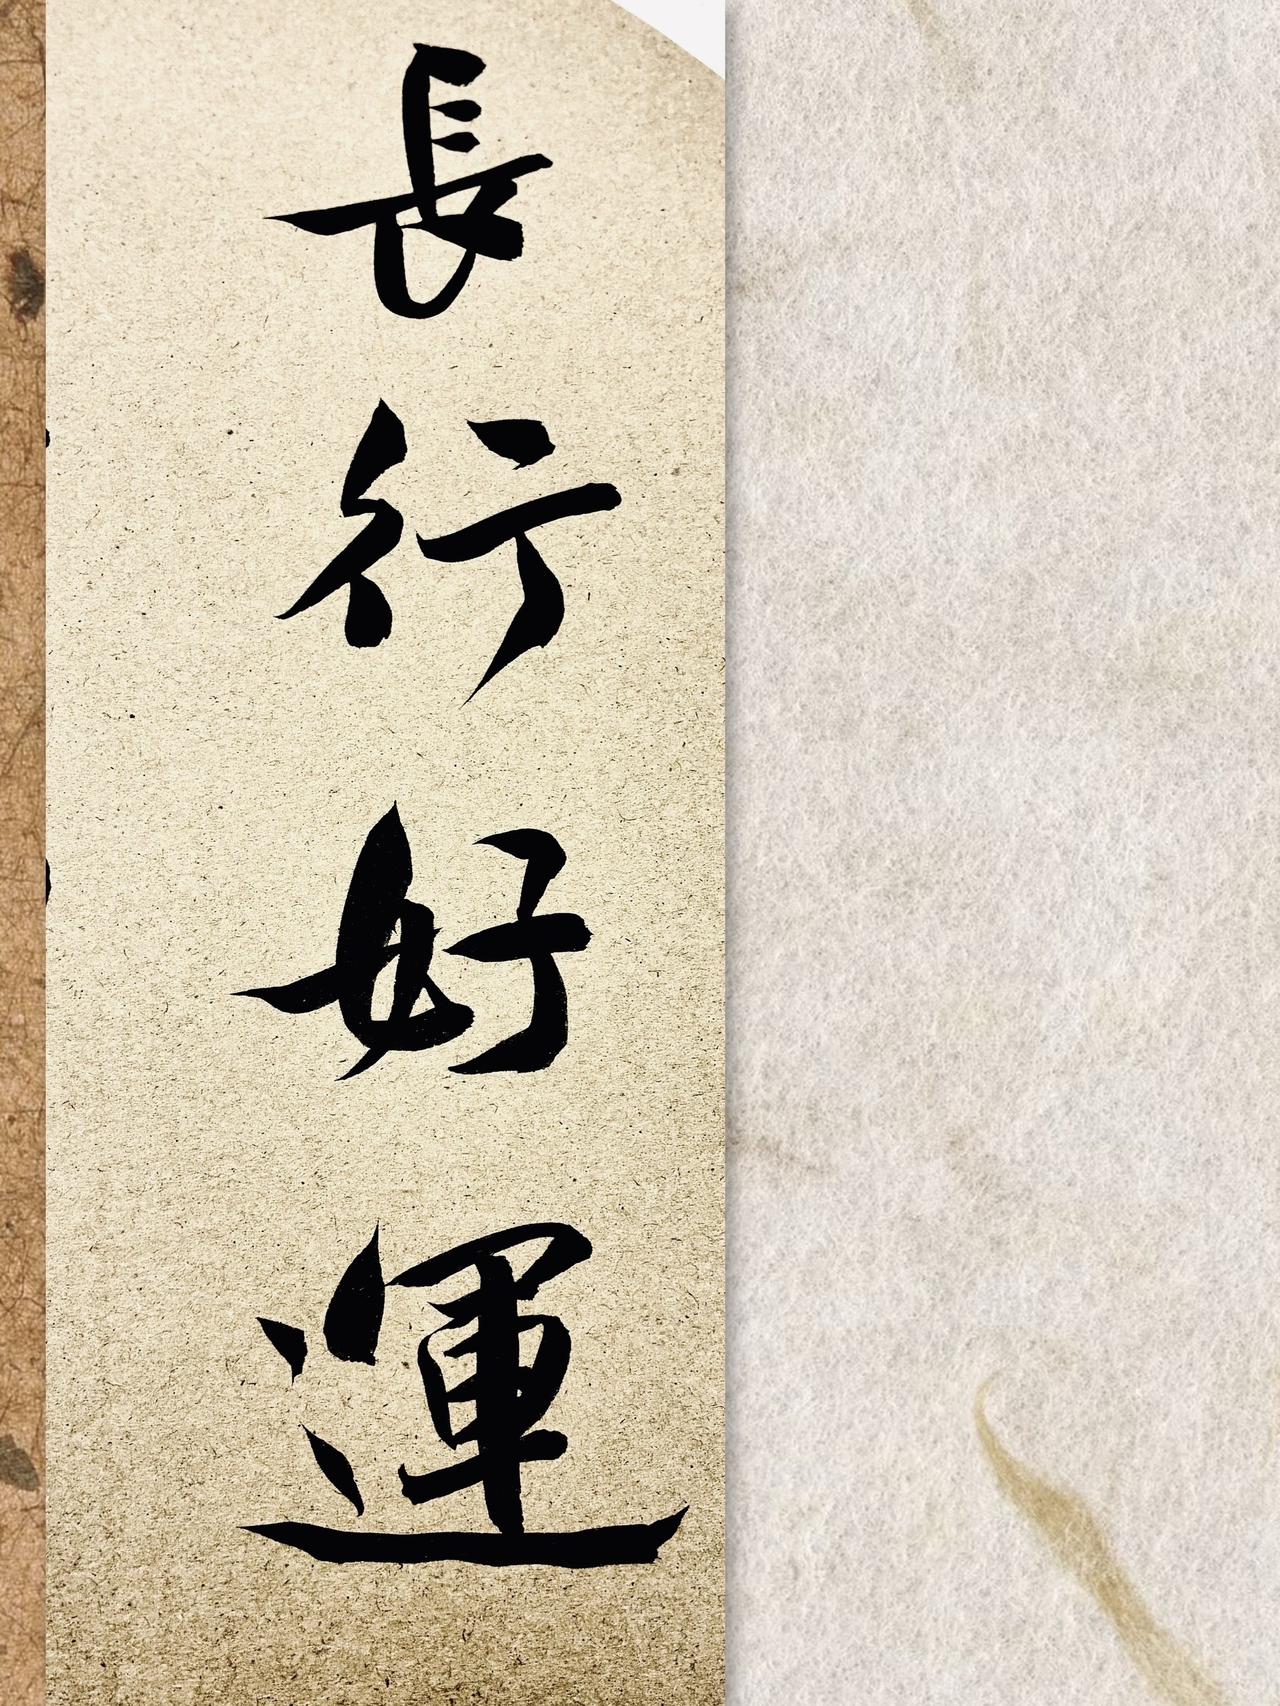 長行好運